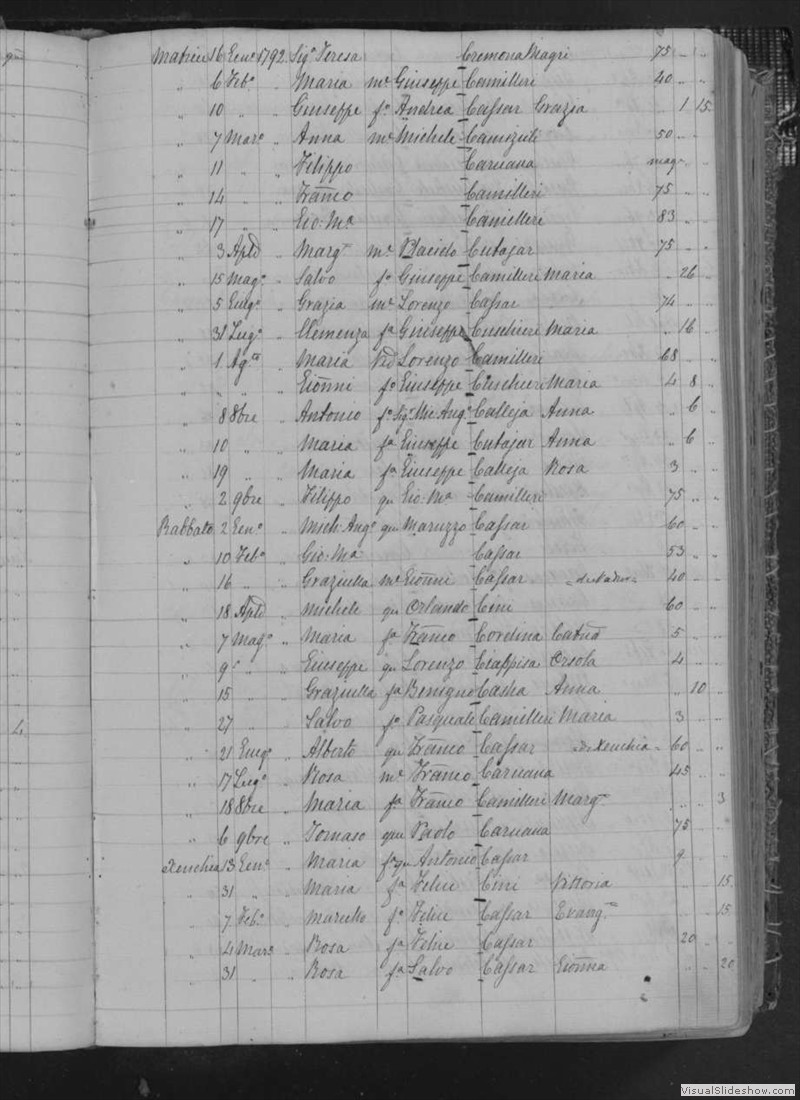 Matrice 16 Enn.o 1792. Sig.a Teresa Cremona Magri 75 " "
" 6 Feb.o " Maria m.e Giuseppe Camilleri 40 " "
" 10 " " Giuseppe f.o Andrea Cassar Grazia " 1 15
" 7 Mar.o " Anna m.e Michele 50 " "
" 11 " " Filippo Caruana mag.e " "
" 14 " " Franco Camilleri 75 " "
" 17 " " Gio: M.a Camilleri 83 " "
" 3 Aple " Marg.ta m.e Placido Cutajar 75 " "
" 15 Mag.o " Salvo f.o Giuseppe Camilleri Maria " 26 "
" 5 Giug.o " Grazia m.e Lorenzo Cassar 74 " "
" 31 Lug.o " Clemenza f.a Giuseppe Cuschieri Maria " 16 "
" 1 Ag.to " Maria Lorenzo Camilleri 68 " "
" " " " Gionni f.o Giuseppe Cuschieri Maria 4 8 "
" 8 8bre " Antonio f.o Sig.r Mic Ang.o Calleja Anna " 6 "
" 10 " " Maria f.a Giuseppe Cutajar Anna " 6 "
" 19 " " Maria f.a Giuseppe Calleja Rosa 3 " "
" 2 9bre " Filippo qu Gio: M.a Camilleri 75 " "
Rabbato 2 Gen.o " Mich: Ang.o qu Maruzzo Cassar 60 " "
" 10 Feb.o " Gio: M.a Cassar 53 " "
" 16 " " Graziulla m.e Gionni Cassar 40 " "
" 18 Aple " Michele qu Orlando Cini 60 " "
" 7 Mag.o " Maria f.a Franco Cordina Catna 5 " "
" 9 " " Giuseppe qu Lorenzo Ciappisa Orsola 4 " "
" 15 " " Graziulla f.a Benigno Casha Anna " 10 "
4 " 27 " " Salvo f.o Pasquale Camilleri Maria 3 " "
" 21 Giug.o " Alberto qu Franco Cassar di Xeuchia 60 " "
" 17 Lug.o " Rosa m.e Franco Caruana 45 " "
" 18 8bre " Maria f.a Franco Camilleri Marg.ta " " 3
" 6 9bre " Tomaso qm Paolo Caruana 75 " "
Xeuchia 13 Gen.o " Maria f.a qu Antonio Cassar 9 " "
" 31 " " Maria f.a Felice Cini Vittoria " " 15
" 7 Feb.o " Mariello f.o Felice Cassar Evang.ta " " 15
" 4 Mar.o " Rosa f.a Felice Cassar 20 " "
" 31 " " Rosa f.a Salvo Cassar Gionna " " 20
VisualSlideshow.com